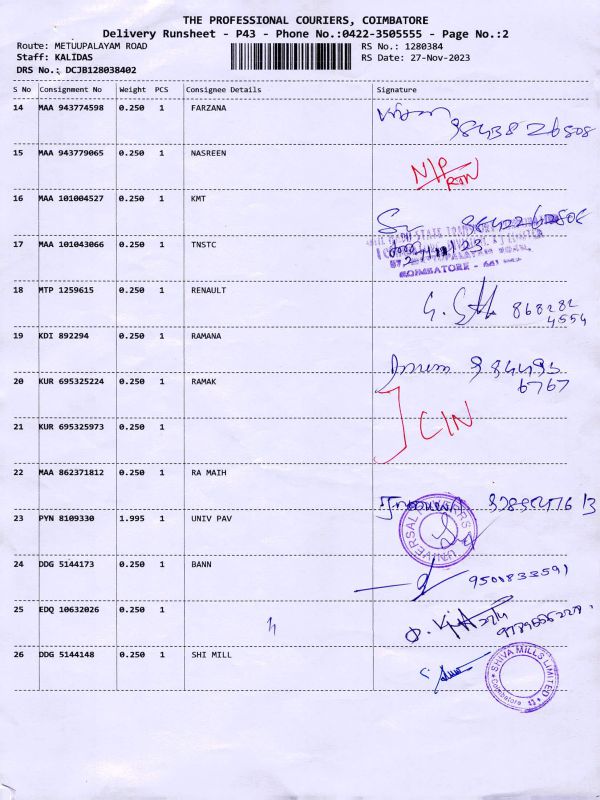 THE PROFESSIONAL COURIERS, COIMBATORE
Delivery Runsheet - P43 - Phone No.:0422-3505555 - Page No.:2
Route: METUUPALAYAM ROAD RS No.: 1280384
Staff: KALIDAS RS Date: 27-Nov-2023
DRS No.: DCJB128038402
S No Consignment No Weight PCS Consignee Details Signature
14 MAA 943774598 0.250 1 FARZANA
98438 26508
15 MAA 943779065 0.250 1 NASREEN
N/P
RTN
16 MAA 101004527 0.250 1 KMT
17 MAA 101043066 0.250 1 TNSTC
COIMBATORE
18 MTP 1259615 0.250 1 RENAULT
868282
4554
19 KDI 892294 0.250 1 RAMANA
20 KUR 695325224 0.250 1 RAMAK
6767
C/N
21 KUR 695325973 0.250 1
22 MAA 862371812 0.250 1 RA MAIH
23 PYN 8109330 1.995 1 UNIV PAV
24 DDG 5144173 0.250 1 BANN
9500833591
25 EDQ 10632026 0.250 1
26 DDG 5144148 0.250 1 SHI MILL
SHIVA MILLS LIMITED
Coimbatore